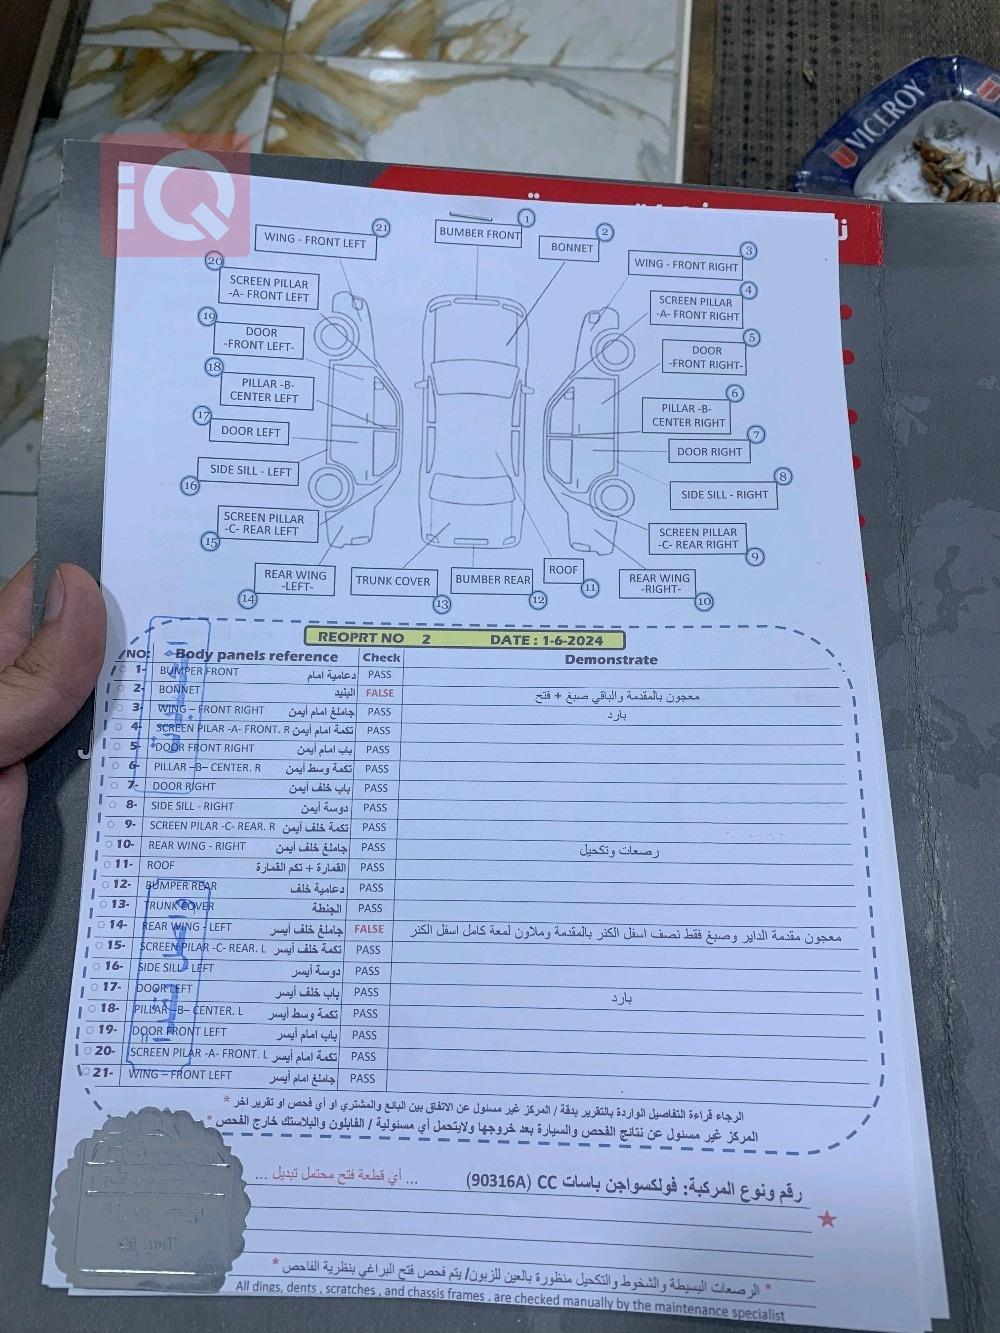 iQ
VICEROY
1
BUMBER FRONT
2
BONNET
3
WING - FRONT RIGHT
4
SCREEN PILLAR
-A- FRONT RIGHT
5
DOOR
-FRONT RIGHT-
6
PILLAR -B-
CENTER RIGHT
7
DOOR RIGHT
8
SIDE SILL - RIGHT
SCREEN PILLAR
-C- REAR RIGHT
9
REAR WING
-RIGHT-
10
ROOF
11
BUMBER REAR
12
TRUNK COVER
13
REAR WING
-LEFT-
14
SCREEN PILLAR
-C- REAR LEFT
15
SIDE SILL - LEFT
16
17
DOOR LEFT
18
PILLAR -B-
CENTER LEFT
19
DOOR
-FRONT LEFT-
20
SCREEN PILLAR
-A- FRONT LEFT
21
WING - FRONT LEFT
REOPRT NO 2 DATE : 1-6-2024
/NO: Body panels reference Check Demonstrate
1- BUMPER FRONT دعامية امام PASS
2- BONNET البنيد FALSE معجون بالمقدمة والباقي صبغ + فتح
3- WING – FRONT RIGHT جاملغ امام أيمن PASS بارد
4- SCREEN PILAR -A- FRONT. R تكمة امام أيمن PASS
5- DOOR FRONT RIGHT باب امام أيمن PASS
6- PILLAR –B– CENTER. R تكمة وسط أيمن PASS
7- DOOR RIGHT باب خلف أيمن PASS
8- SIDE SILL - RIGHT دوسة أيمن PASS
9- SCREEN PILAR -C- REAR. R تكمة خلف أيمن PASS
10- REAR WING - RIGHT جاملغ خلف أيمن PASS رصعات وتكحيل
11- ROOF القمارة + تكم القمارة PASS
12- BUMPER REAR دعامية خلف PASS
13- TRUNK COVER الجنطة PASS
14- REAR WING - LEFT جاملغ خلف أيسر FALSE معجون مقدمة الداير وصبغ فقط نصف اسفل الكنر بالمقدمة وملاون لمعة كامل اسفل الكنر
15- SCREEN PILAR -C- REAR. L تكمة خلف أيسر PASS
16- SIDE SILL - LEFT دوسة أيسر PASS
17- DOOR LEFT باب خلف أيسر PASS بارد
18- PILLAR –B– CENTER. L تكمة وسط أيسر PASS
19- DOOR FRONT LEFT باب امام أيسر PASS
20- SCREEN PILAR -A- FRONT. L تكمة امام أيسر PASS
21- WING – FRONT LEFT جاملغ امام أيسر PASS
الرجاء قراءة التفاصيل الواردة بالتقرير بدقة / المركز غير مسئول عن الاتفاق بين البائع والمشتري او أي فحص او تقرير اخر *
المركز غير مسئول عن نتائج الفحص والسيارة بعد خروجها ولايتحمل أي مسئولية / القابلون والبلاستك خارج الفحص *
رقم ونوع المركبة: فولكسواجن باسات CC (90316A) ... أي قطعة فتح محتمل تبديل ...
* الرصعات البسيطة والشخوط والتكحيل منظورة بالعين للزبون/ يتم فحص فتح البراغي بنظرية الفاحص *
All dings, dents , scratches , and chassis frames . are checked manually by the maintenance specialist